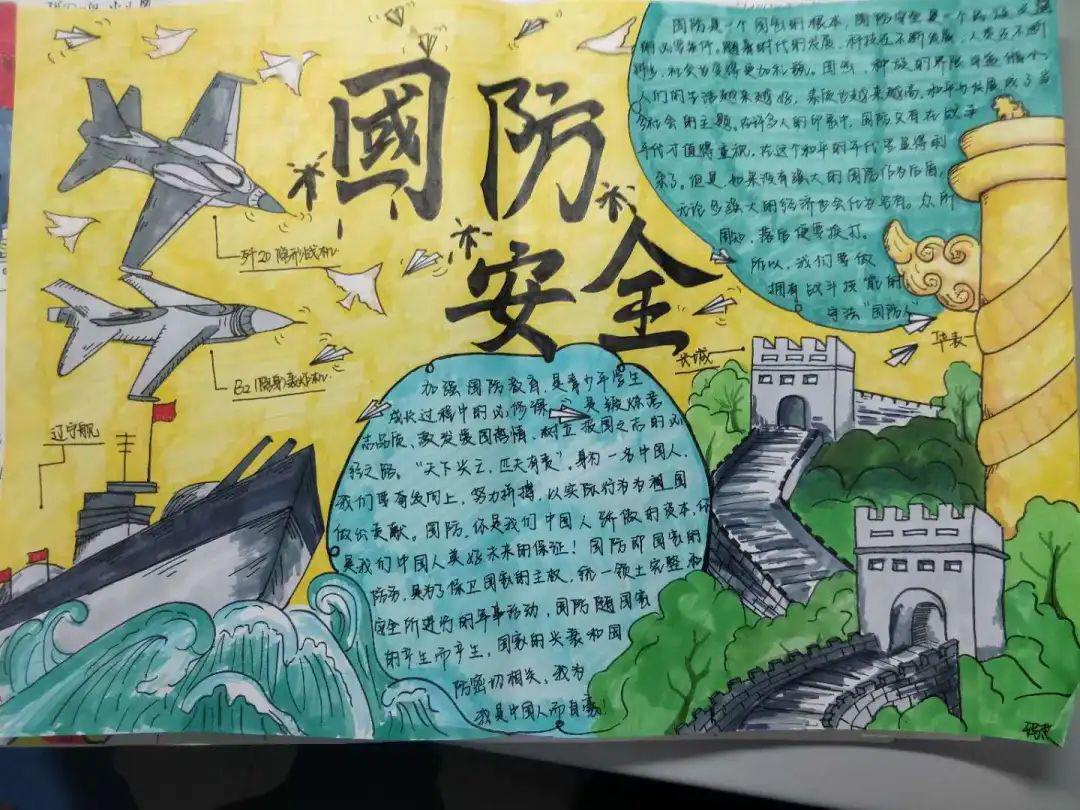 國防
安全
国防是一个国家的根本，国防安全是一个民族
的必要条件。随着时代的发展，科技在不断发展，人类在不断
社会变得更加礼貌。国家，种族的界限
人们的生活越来越好，素质也越来越高，和平与发展成了当
今社会的主题。在许多人的印象中，国防只有在战争
年代才值得重视，在这个和平的年代
但是，如果没有强大的国防作为后盾，
无论多强大的经济也会化为乌有。众所
周知，落后便要挨打。
所以，我们要做
拥有战斗技能的
守法“国防人”
歼20隐形战机
B21隐身轰炸机
辽宁舰
长城
华表
加强国防教育，是青少年学生
成长过程中的必修课，是锻炼意
志品质、激发爱国热情，树立报国之志的必
经之路。“天下兴亡，匹夫有责”，身为一名中国人，
我们要奋发向上，努力拼搏，以实际行为为祖国
做出贡献。国防，你是我们中国人骄傲的资本，你
是我们中国人美好未来的保证！国防即国家的
防务，是为了保卫国家的主权，统一领土完整和
安全所进行的军事活动，国防随国家
的产生而产生，国家的兴衰和国
防密切相关，我为
我是中国人而自豪！